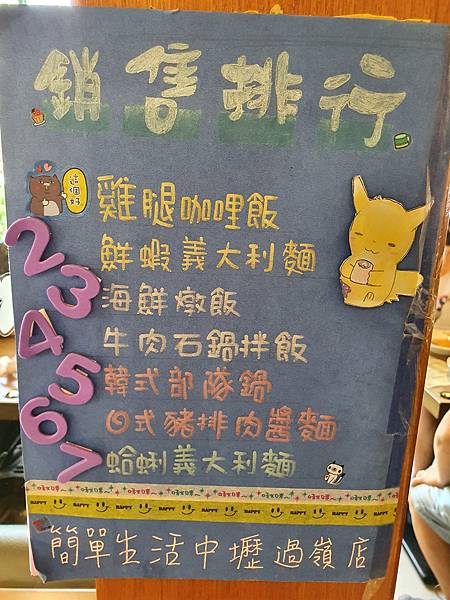 銷售排行
這個好
雞腿咖哩飯
2 鮮蝦義大利麵
3 海鮮燉飯
4 牛肉石鍋拌飯
5 韓式部隊鍋
6 日式豬排肉醬麵
7 蛤蜊義大利麵
HAPPY HAPPY HAPPY HAPPY HAPPY HAPPY
簡單生活中壢過嶺店